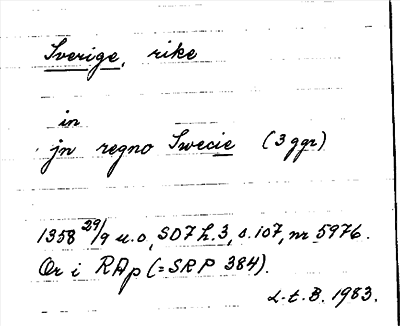 Sverige, rike
in
jn regno Swecie (3 ggr)
1358 29/9 u.o, SD7 h.3, s.107, nr 5976.
Or i RAp (=SRP 384).
L.t.B. 1983.